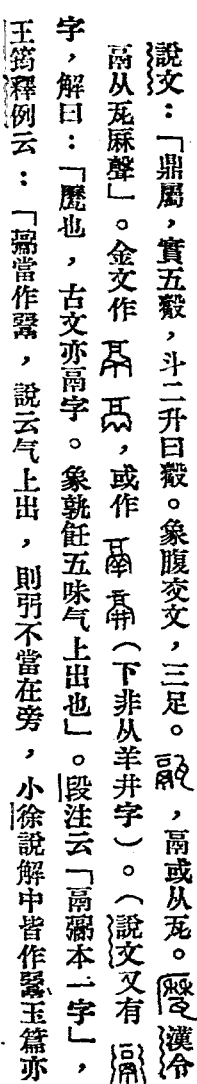 說文：「鼎屬，實五觳，斗二升曰觳。象腹交文，三足。，鬲或从瓦。漢令
鬲从瓦厤聲」。金文作，或作（下非从羊井字）。（說文又有
字，解曰：「歷也，古文亦鬲字。象孰飪五味气上出也」。段注云「鬲䰜本一字」，
王筠釋例云：「䰜當作，說云气上出，則弜不當在旁，小徐說解中皆作玉篇亦